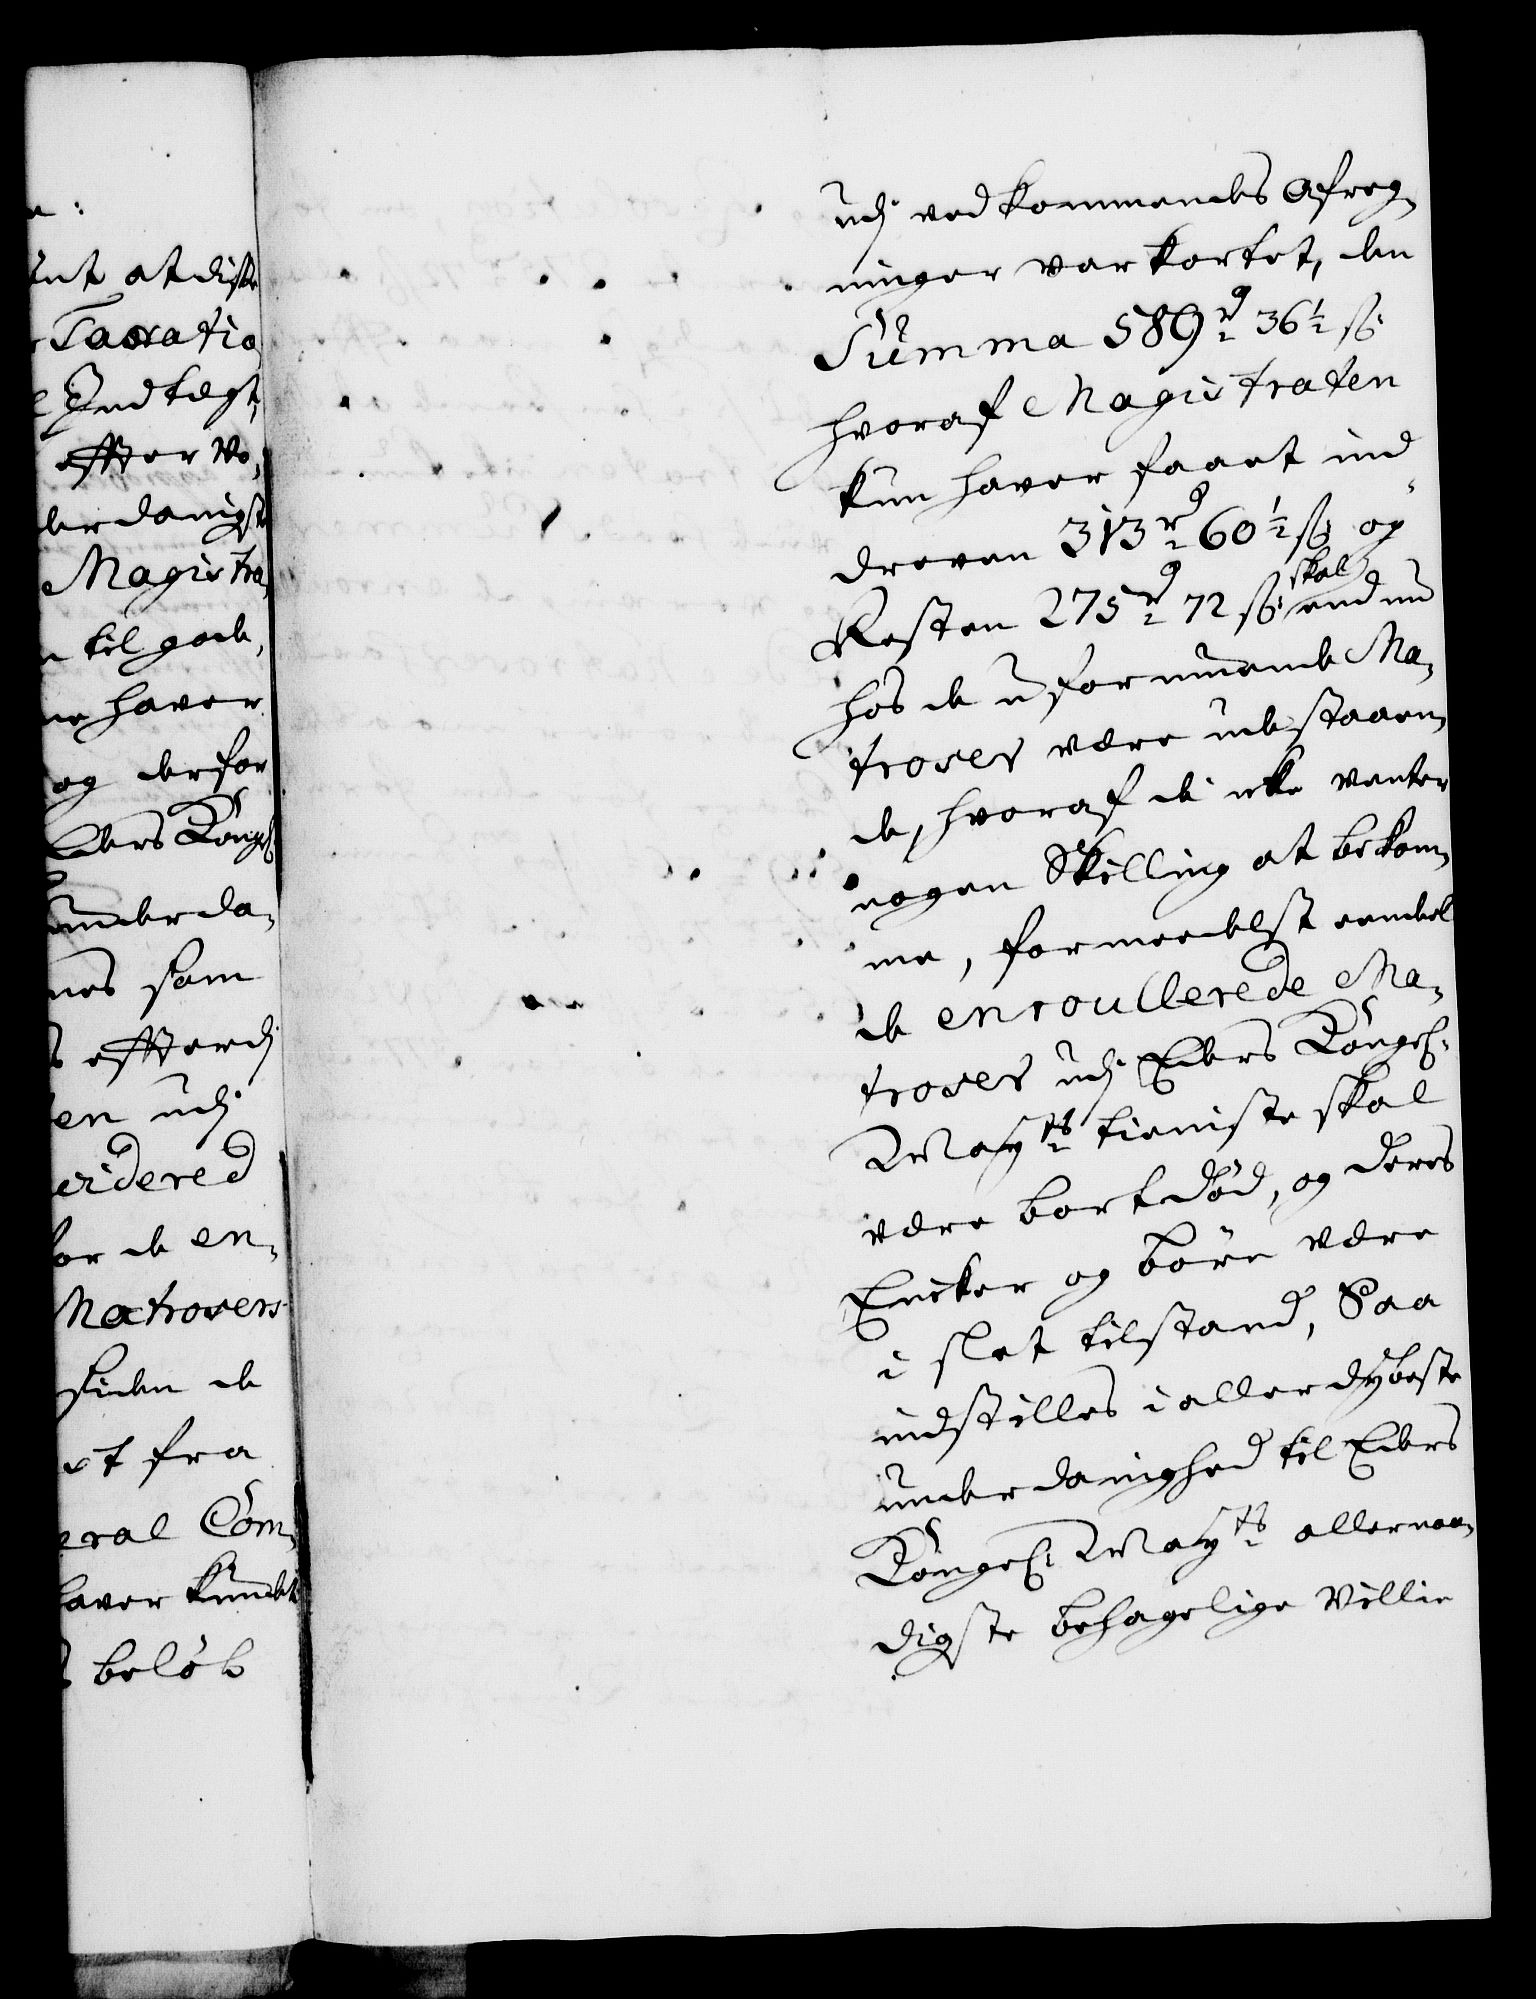 e:
unt at diste
Taxatio
Indtegt,
effter Vo,
derdanigst
Magistra,
til gode,
ne haver
og derfor
Eders Kongel:
underda,
nes som
effterdj
en udj
videred
for de en,
Matrosers
siden de
et fra
eral Com,
haver kundet
beløb
udj vedkommendes Afreg,
ninger var kortet, den
Summa 589 rd 36½ sz
hvoraf Magistraten
kun haver faaet ind
dreven 313 rd 60½ sz og
Resten 275 rd 72 sz skal endnu
hos de u formuende Ma,
troser være udestaaen,
de, hvoraf de icke venter
nogen Skilling at bekom,
me, formeedelst eendeel
de enroullerede Ma,
troser udj Eders Kongel:
Mayts tieniste skal
være bortdöd, og deres
Encker og börn være
i slet tilstand, Saa
indstilles i allerdybeste
underdanighed til Eders
Kongel: Mayts allernaa,
digste behagelige Villie